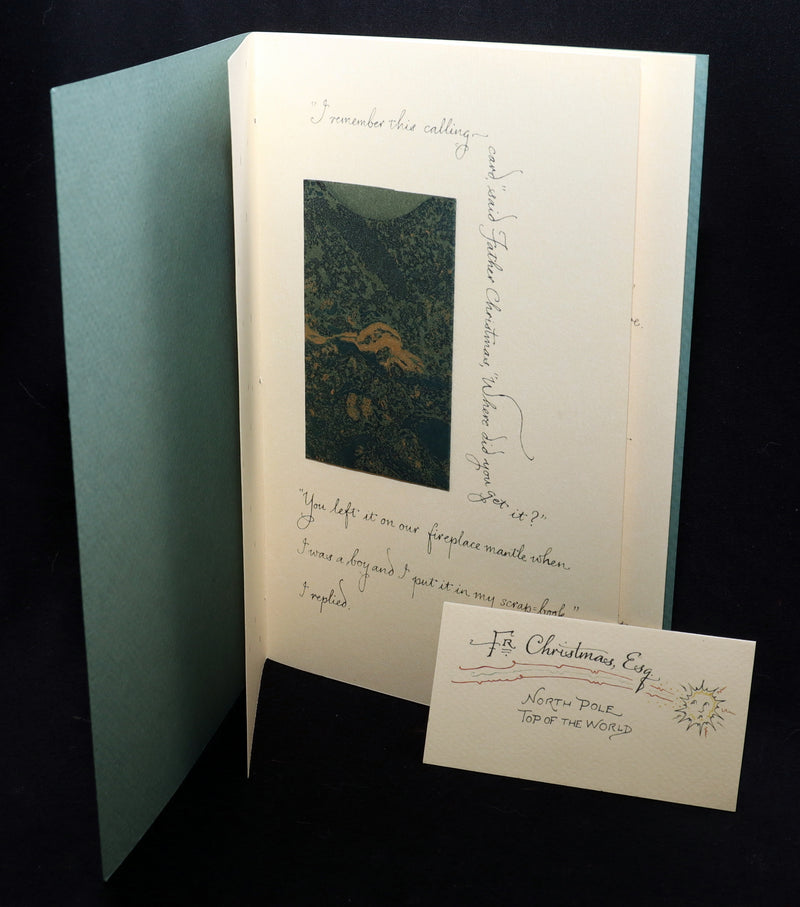 "I remember this calling-
card," said Father Christmas, "Where did you get it?"
"You left it on our fireplace mantle when
I was a boy and I put it in my scrap-book,"
I replied.
Fr. Christmas, Esq.
North Pole
Top of the World